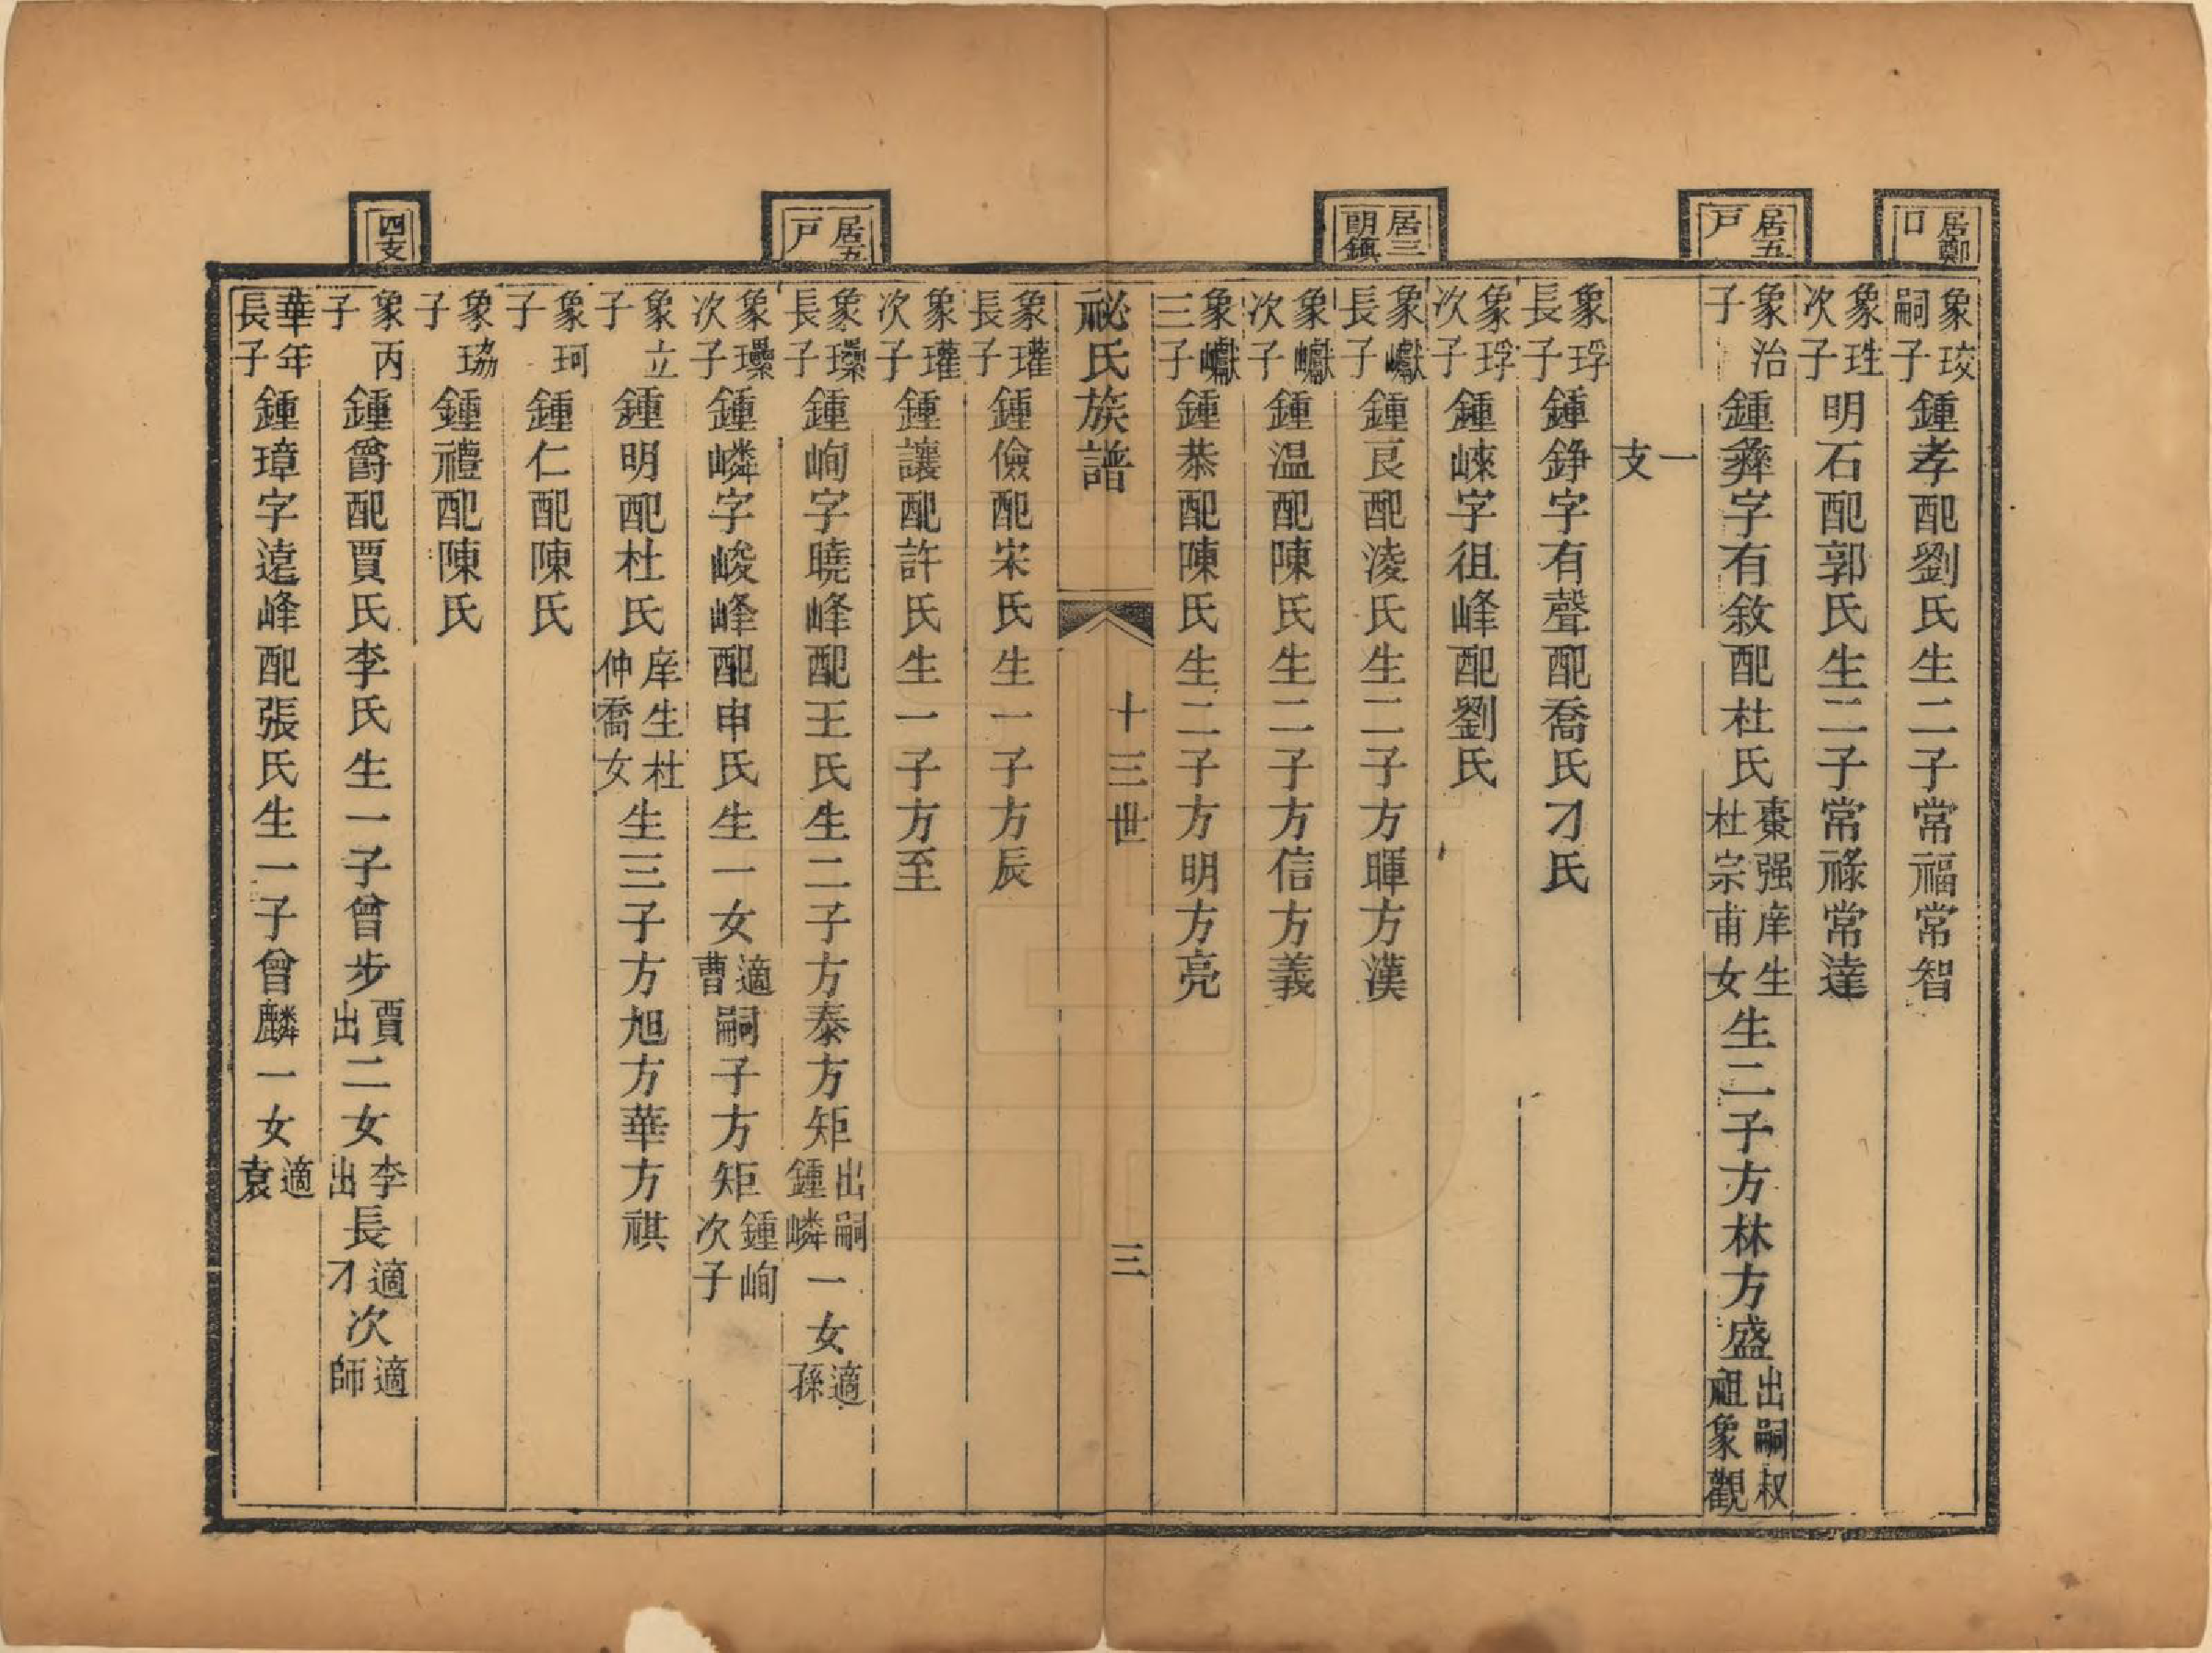 居鄭口
象珓嗣子鍾孝配劉氏生二子常福常智
象珄次子明石配郭氏生二子常祿常達
居五戸
象治子鍾彜字有敘配杜氏棗强庠生杜宗甫女生二子方林方盛出嗣叔祖象觀
一支
象琈長子鍾錚字有聲配喬氏刁氏
象琈次子鍾崍字徂峰配劉氏
居三朙鎮
象巘長子鍾良配淩氏生二子方暉方漢
象巘次子鍾温配陳氏生二子方信方義
象巘三子鍾恭配陳氏生二子方明方亮
祕氏族譜 十三世 三
象瓘長子鍾儉配宋氏生一子方辰
象瓘次子鍾讓配許氏生一子方至
居五戸
象長子鍾峋字曉峰配王氏生二子方泰方矩出嗣鍾嶙一女適孫
象次子鍾嶙字峻峰配申氏生一女適曹嗣子方矩鍾峋次子
象立子鍾明配杜氏庠生杜仲喬女生三子方旭方華方祺
象珂子鍾仁配陳氏
象子鍾禮配陳氏
四支
象丙子鍾爵配賈氏李氏生一子曾步賈出二女李出長適刁次適師
華年長子鍾璋字遠峰配張氏生一子曾麟一女適袁